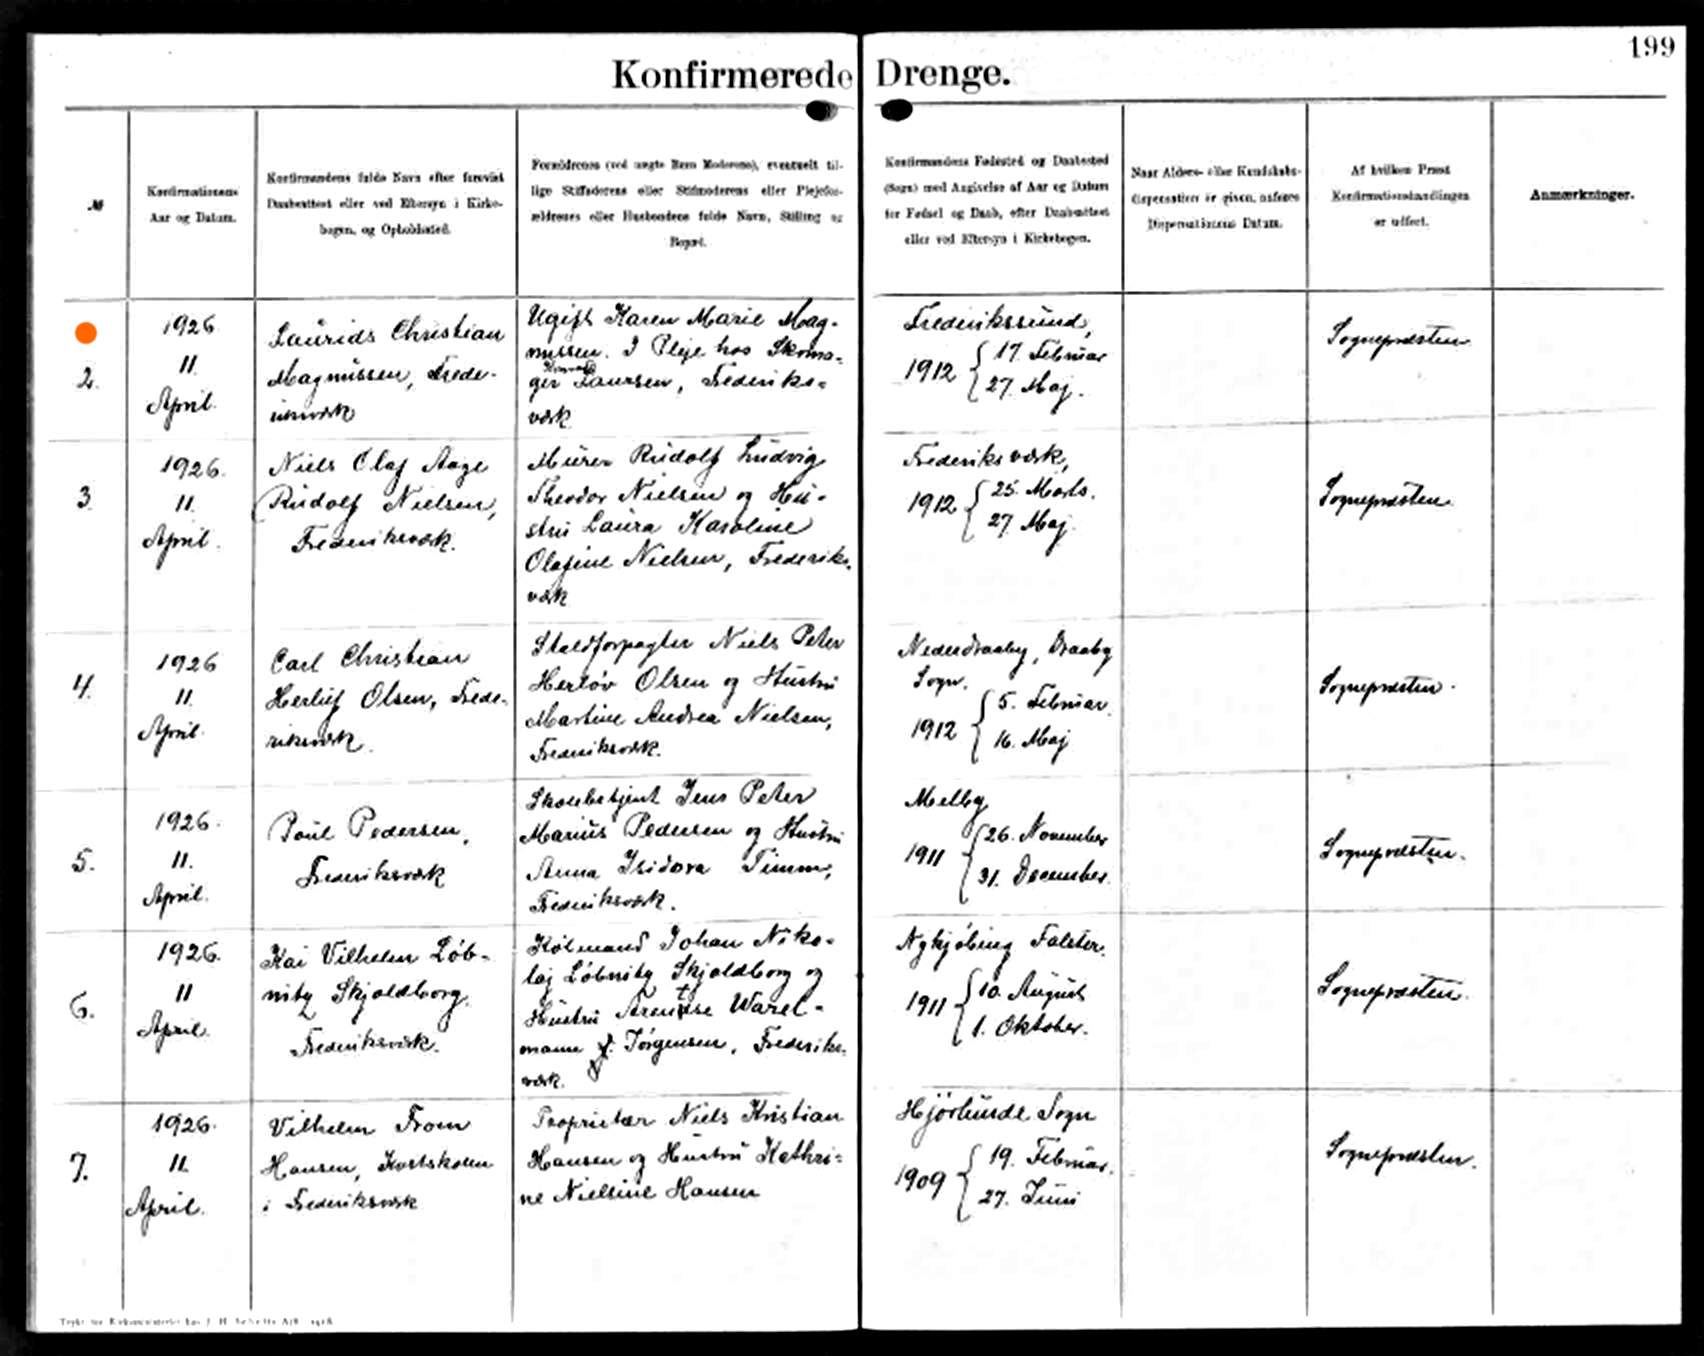 199
Konfirmerede Drenge.
№
Konfirmationens
Aar og Datum.
Konfirmandens fulde Navn efter forevist
Daabsattest eller ved Eftersyn i Kirke-
bogen, og Opholdssted.
Forældrenes (ved uægte Børn Moderens), eventuelt til-
lige Stiffaderens eller Stifmoderens eller Plejefor-
ældrenes eller Husbondens fulde Navn, Stilling og
Bopæl.
Konfirmandens Fødested og Daabssted
(Sogn) med Angivelse af Aar og Datum
for Fødsel og Daab, efter Daabsattest
eller ved Eftersyn i Kirkebogen.
Naar Alders- eller Kundskabs-
dispensation er given, anføres
Dispensationens Datum.
Af hvilken Præst
Konfirmationshandlingen
er udført.
Anmærkninger.
2.
1926
11.
April.
Laurids Christian
Magnussen, Frede-
riksværk
Ugift Karen Marie Mag-
nussen. I Pleje hos Skoma-
ger Laursen, Frederiks-
værk
Frederikssund,
1912 { 17. Februar
27. Maj.
Sognepræsten.
3.
1926.
11.
April.
Niels Olaf Aage
Rudolf Nielsen,
Frederiksværk.
Murer Rudolf Ludvig
Theodor Nielsen og Hu-
stru Laura Karoline
Olafine Nielsen, Frederiks-
værk
Frederiksværk,
1912 { 25. Marts.
27. Maj.
Sognepræsten.
4.
1926
11.
April.
Carl Christian
Herluf Olsen, Frede-
riksværk.
Staldforpagter Niels Peter
Herløv Olsen og Hustru
Martine Andrea Nielsen,
Frederiksværk.
Nederdraaby, Draaby
Sogn.
1912 { 5. Februar.
16. Maj
Sognepræsten.
5.
1926.
11.
April.
Poul Pedersen,
Frederiksværk
Skolebetjent Jens Peter
Marius Pedersen og Hustru
Anna Isidora Timm,
Frederiksværk.
Melby
1911 { 26. November
31. December.
Sognepræsten.
6.
1926.
11
April.
Kai Vilhelm Løb-
nitz Skjoldborg.
Frederiksværk.
Kølmand Johan Niko-
laj Löbnitz Skjoldborg og
Hustru
mann f. Jörgensen, Frederiks-
værk.
Nykjøbing Falster.
1911 { 10. August
1. Oktober.
Sognepræsten.
7.
1926.
11.
April.
Vilhelm From
Hansen, Kostskolen
i Frederiksværk
Proprietær Niels Kristian
Hansen og Hustru Kathri-
ne Nielsine Hansen
Hjörlunde Sogn
1909 { 19. Februar.
27. Juni
Sognepræsten.